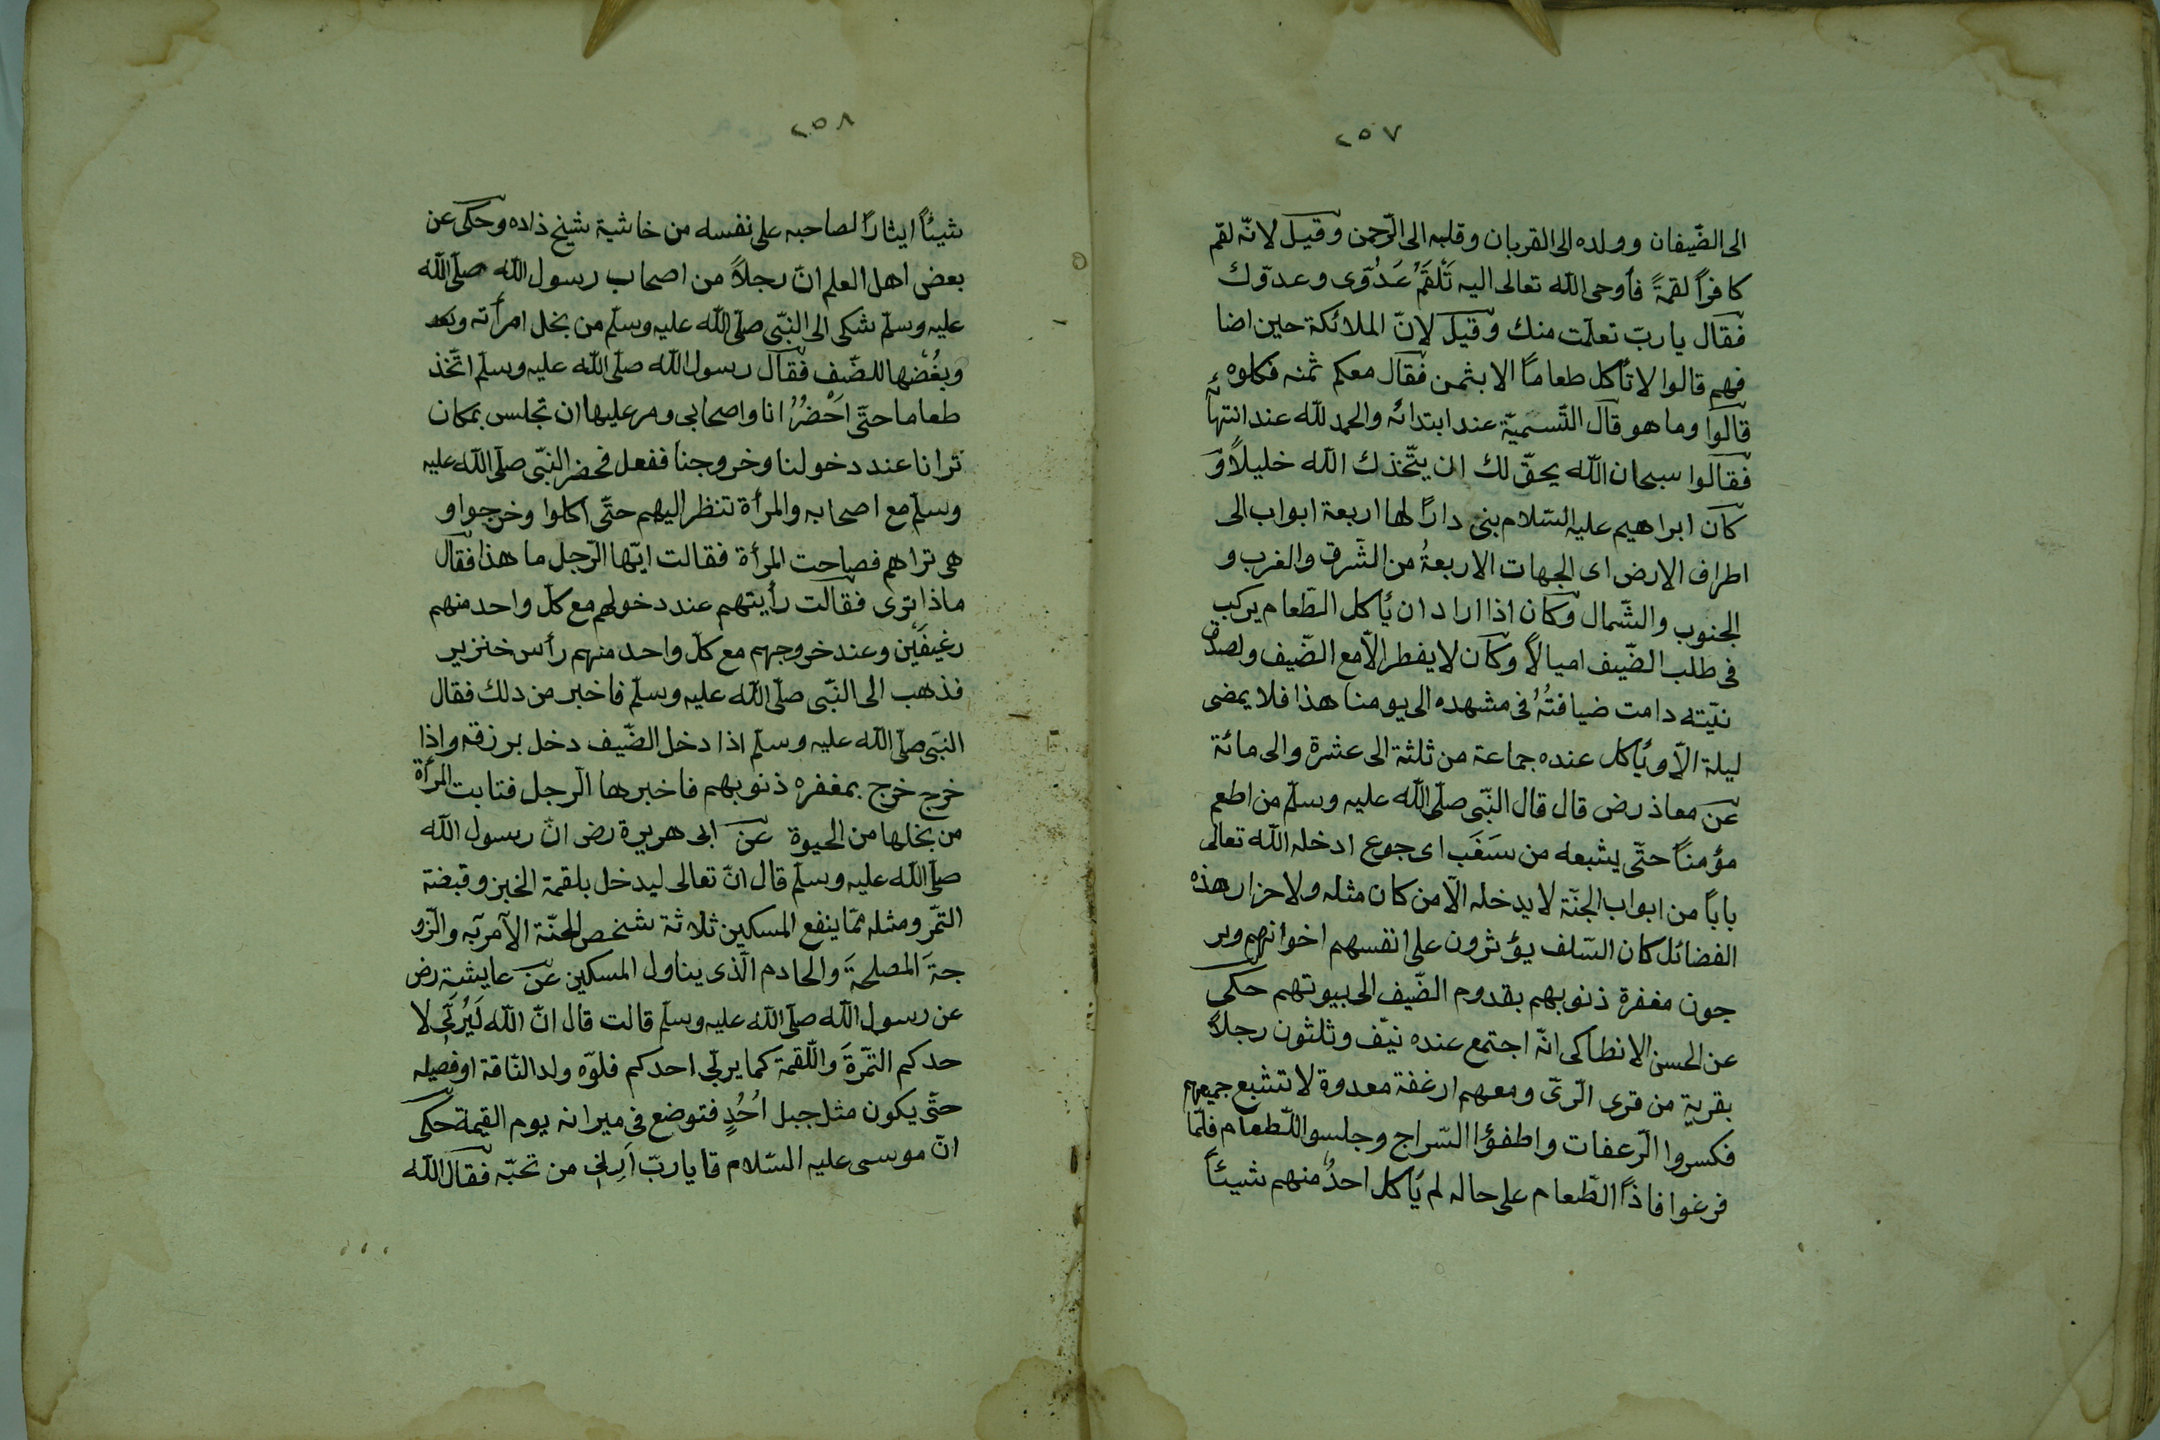 ٢٥٧
الى الضّيفان وولده الى القربان وقلبه الى الرّحمن وقيل لانّه لقم
كافراً لقمةً فأوحى الله تعالى اليه تَلْقَمُ عَدُوّى وعدوّك
فقال يا ربّ تعلّمت منك وقيل لانّ الملائكة حين اضا
فهم قالوا لا تأكل طعاماً الا بثمن فقال معكم ثمنه فكلوه
قالوا وما هو قال التّسميّة عند ابتدائه والحمد لله عند انتهائه
فقالوا سبحان الله يحقّ لك ان يتّخذك الله خليلاً و
كان ابراهيم عليه السّلام بنى داراً لها اربعة ابواب الى
اطراف الارض اى الجهات الاربعةُ من الشّرق والغرب و
الجنوب والشّمال وكان اذا اراد ان يأكل الطّعام يركب
فى طلب الضّيف اميالاً وكان لا يفطر الاّ مع الضّيف ولصدق
نيّته دامت ضيافتُهُ فى مشهده الى يومنا هذا فلا يمضى
ليلة الاّ ويأكل عنده جماعة من ثلثة الى عشرة والى مائة
عن معاذ رض قال قال النّبى صلّى الله عليه وسلّم من اطعم
مؤمناً حتّى يشبعه من سَغَب اى جوع ادخله الله تعالى
باباً من ابواب الجنّة لا يدخله الاّ من كان مثله ولاحراز هذه
الفضائل كان السّلف يؤثرون على انفسهم اخوانهم وير
جون مغفرة ذنوبهم بقدوم الضّيف الى بيوتهم حكى
عن الحسن الانطاكى انّه اجتمع عنده نيّف وثلثون رجلاً
بقرية من قرى الرّىّ ومعهم ارغفة معدوة لا تشبع جميعهم
فكسروا الرّعفات واطفؤا السّراج وجلسوا للّطعام فلمّا
فرغوا فاذاً الطّعام على حاله لم يأكل احدٌ منهم شيئاً
٢٥٨
شيئاً ايثاراً لصاحبه على نفسه من خاشية شيخ ذاده وحكى عن
بعض اهل العلم انّ رجلاً من اصحاب رسول الله صلّى الله
عليه وسلّم شكى الى النّبى صلّى الله عليه وسلّم من بخل امرأته وبعد
وبغُضها للضّيف فقال رسول الله صلّى الله عليه وسلّم اتّخذ
طعاما حتّى احْضُرُ انا واصحابى ومر عليها ان تجلس بمكان
ترانا عند دخولنا وخروجنا ففعل فحضر النّبى صلّى الله عليه
وسلّم مع اصحابه والمرأة تنظر اليهم حتّى اكلوا وخرجوا و
هى تراهم فصاحت المرأة فقالت ايّها الرّجل ما هذا فقال
ماذا ترى فقالت رأيتهم عند دخولهم مع كلّ واحد منهم
رغيفَيْن وعند خروجهم مع كلّ واحد منهم رأس خنزير
فذهب الى النّبى صلّى الله عليه وسلّم فاخبر من ذلك فقال
النّبى صلّى الله عليه وسلّم اذا دخل الضّيف دخل برزقه واذا
خرج خرج بمغفره ذنوبهم فاخبرها الرّجل فتابت المرأة
من بخلها من الحيوة عن ابى هريرة رض انّ رسول الله
صلّى الله عليه وسلّم قال انّ تعالى ليدخل بلقمة الخبز وقبضة
التّمر ومثله ممّا ينفع المسكين ثلاثة شخص الجنّة الآمر به والزّو
جة المصلحةَ والخادم الّذى يناول المسكين عن عايشة رض
عن رسول الله صلّى الله عليه وسلّم قالت قال انّ الله لَيُرَبّى لا
حدكم التّمرةَ والّلقمة كما يربّى احدكم فلوّه ولد النّاقة او فصيله
حتّى يكون مثل جبل اُحُدٍ فتوضع فى ميزانه يوم القيمة حكى
انّ موسى عليه السّلام قا يا ربّ اَرِنى من تحبّه فقال الله